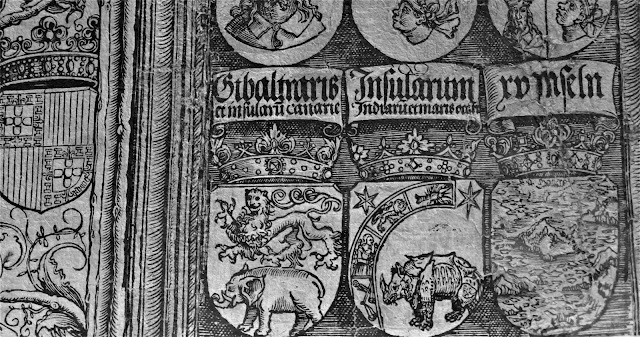 Gibaltaris
et insularũ canarie
Insularum
Indiarũ et maris
xv Inseln